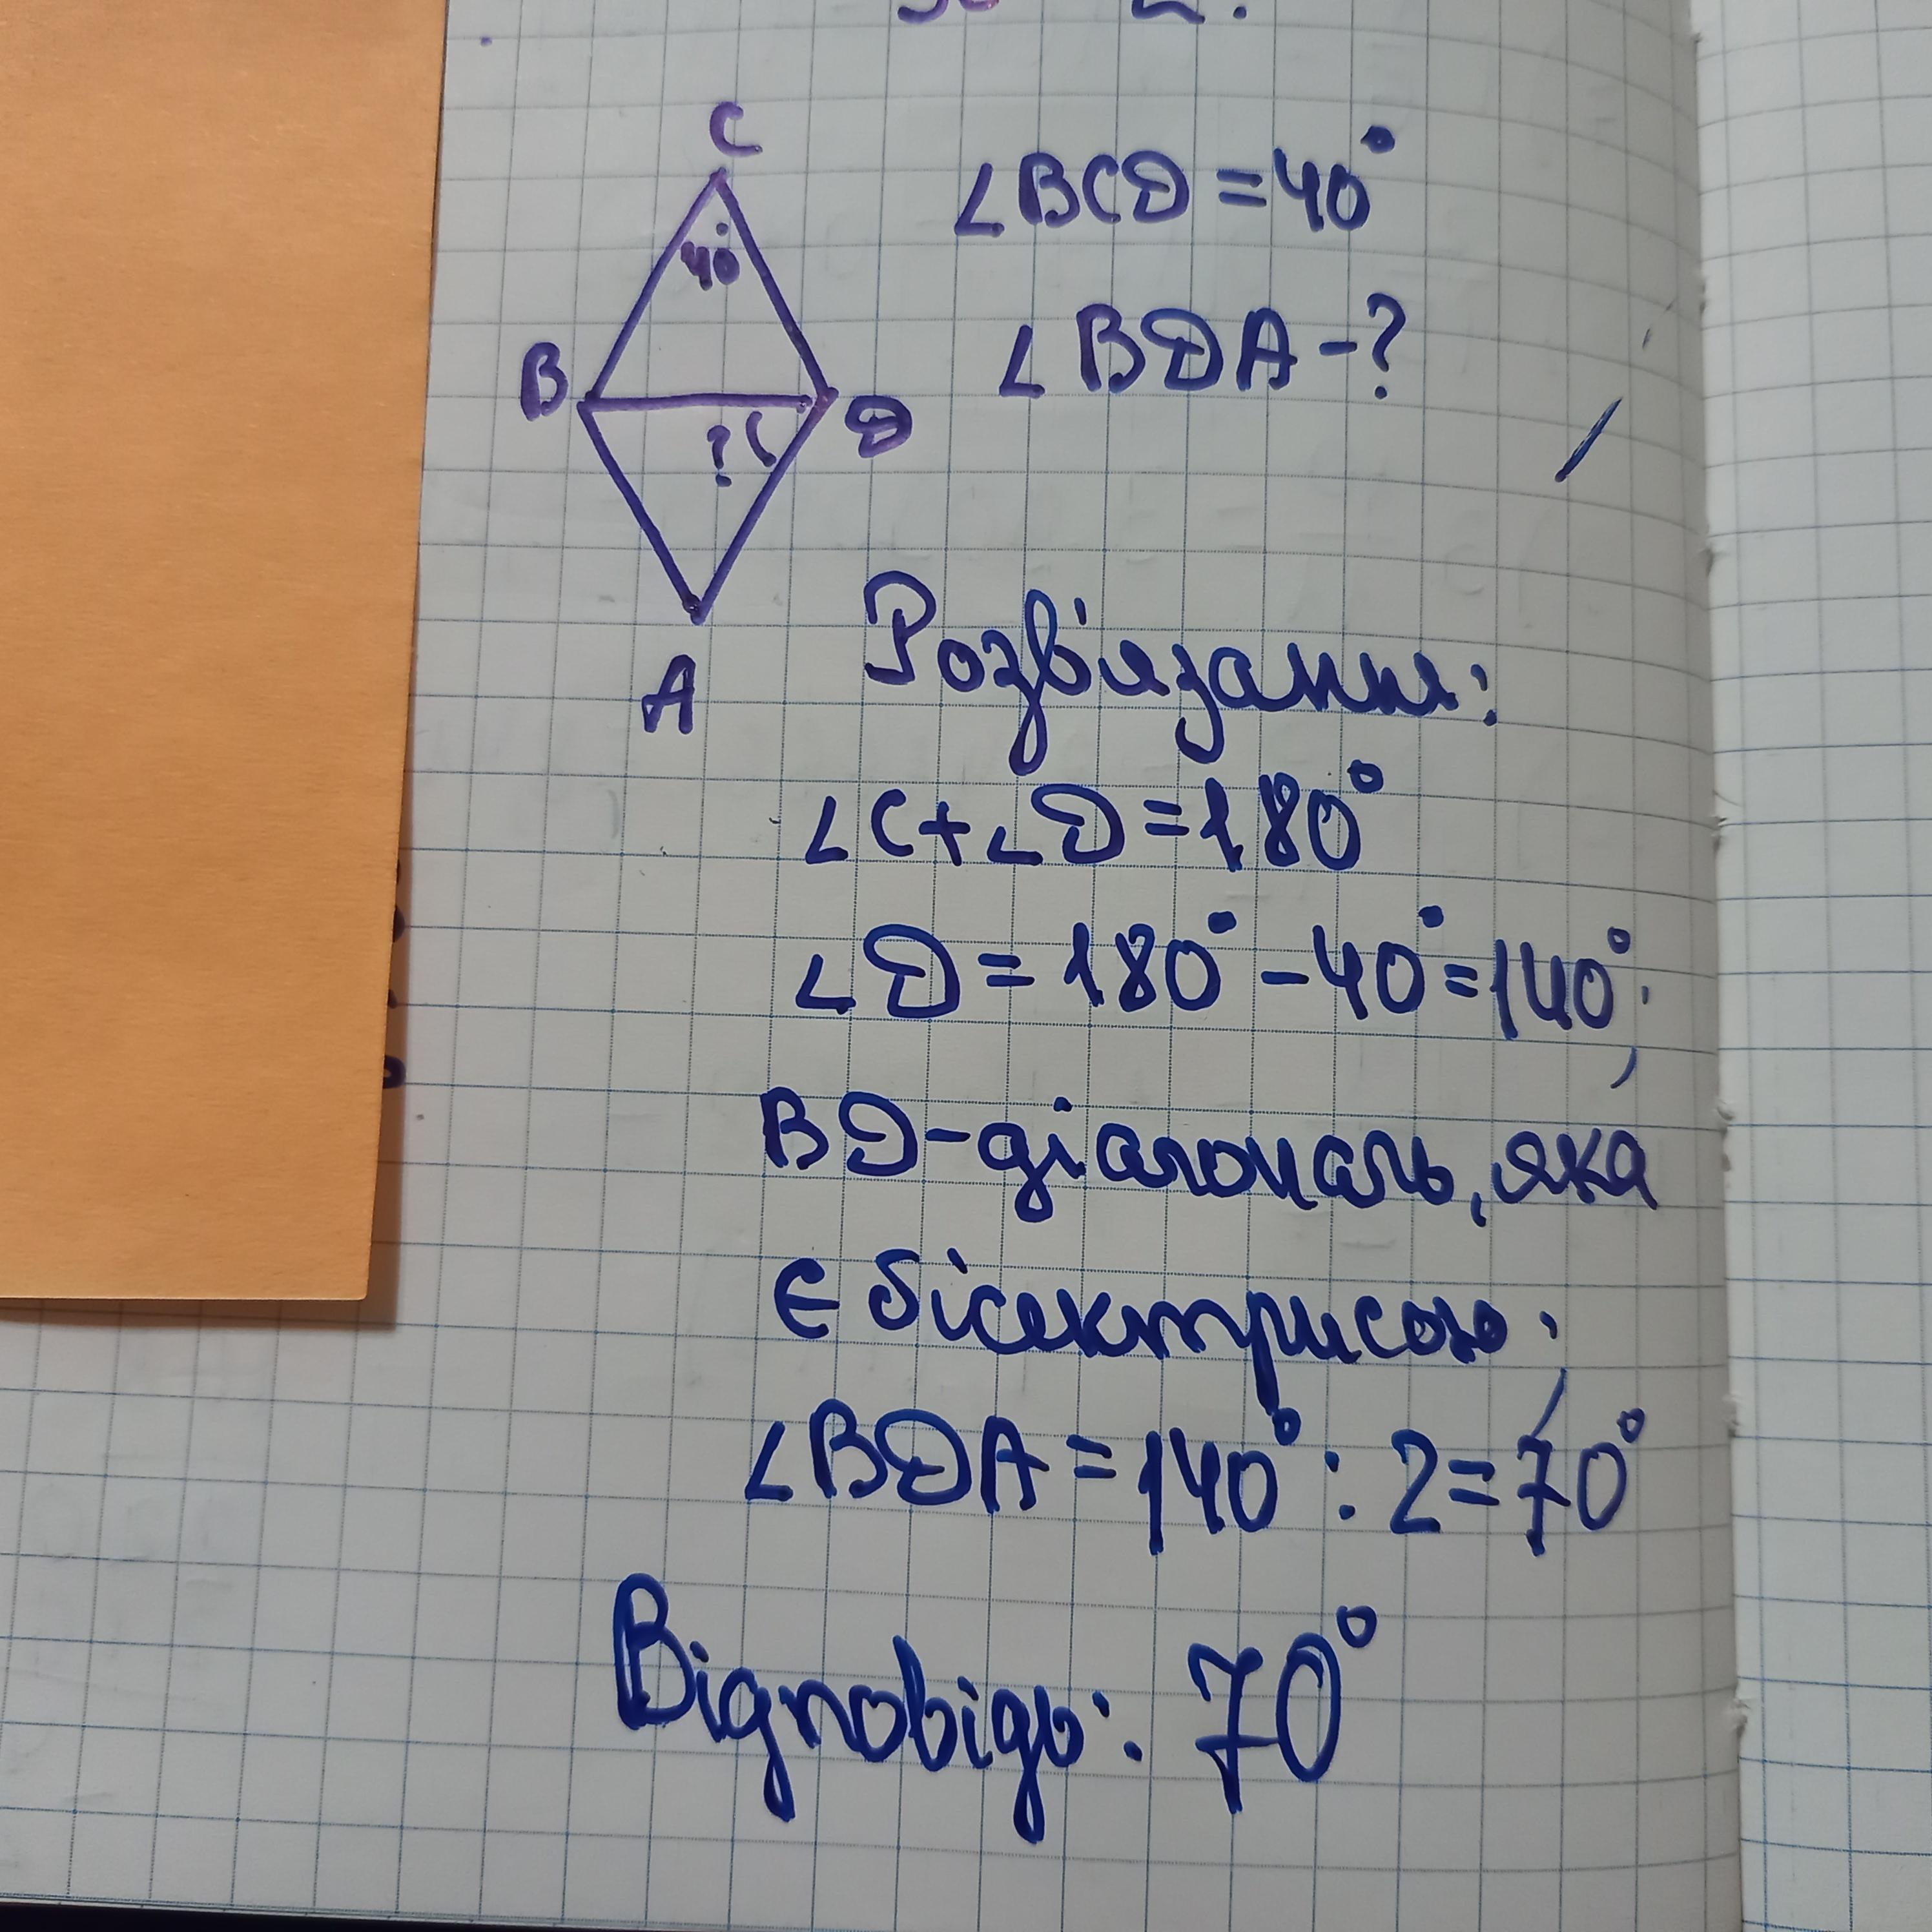 C
∠BCD = 40°
40°
∠BDA - ?
B
D
?
A
Розв'язання:
∠C+∠D = 180°
∠D = 180° - 40° = 140°;
BD - діагональ, яка
є бісектрисою;
∠BDA = 140° : 2 = 70°
Відповідь: 70°